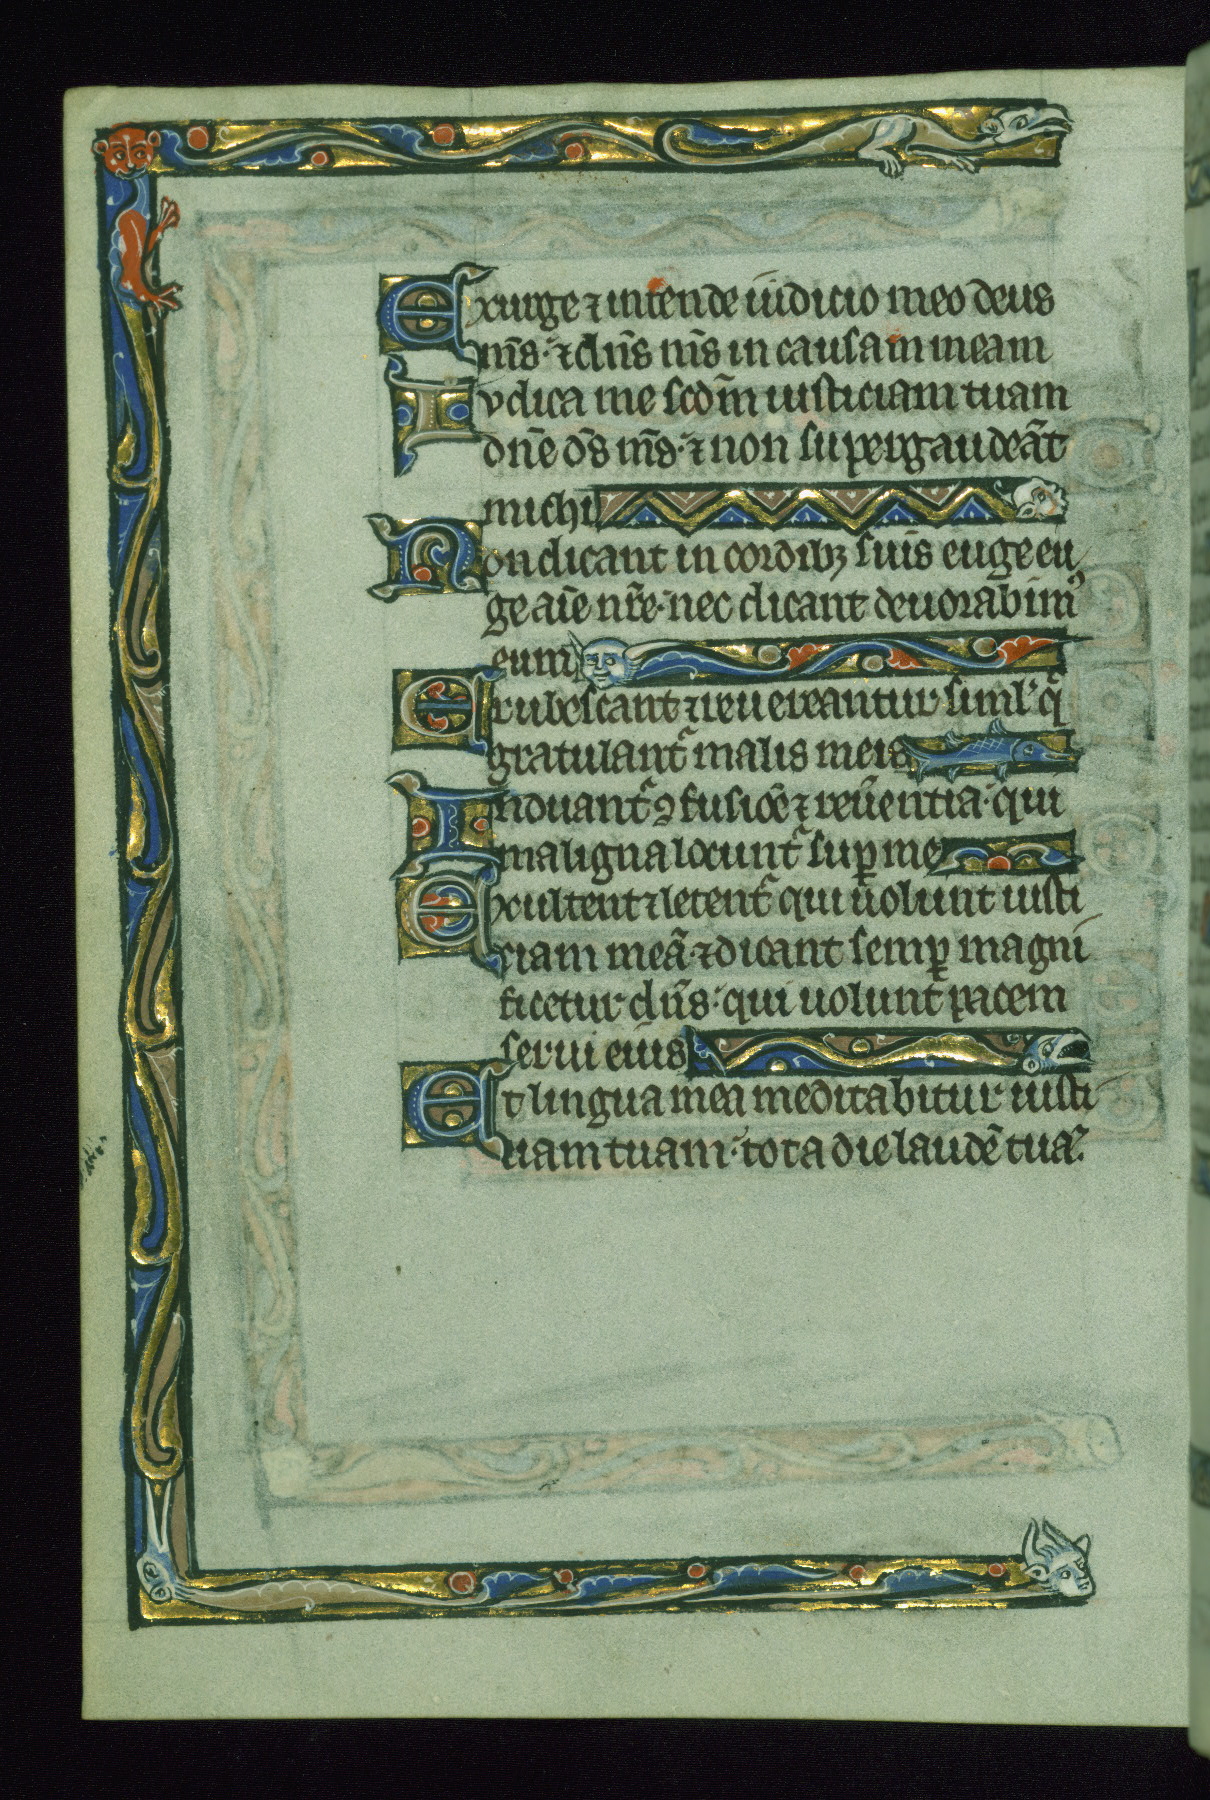 Exurge ⁊ intende iudicio meo deus
m̄s· ⁊ dn̄s m̄s in causam meam
Iudica me scd̄m iusticiam tuam
dn̄e d̄s m̄s· ⁊ non supergaudeāt
michi
Non dicant in cordibꝫ suis euge eu
ge aīe nr̄e· nec dicant deuorabimꝰ
eum
Erubescant ⁊ reuereantur siml' q̄
gratulant᷑ malis meis
Induant᷑ ꝯfusiōe ⁊ reūentia· qui
maligna locunt᷑ suꝑ me
Exultent ⁊ letent᷑ qui uolunt iusti
ciam meā· ⁊ dicant semꝑ magni
ficetur dn̄s· qui uolunt pacem
serui eius
Et lingua mea meditabitur iusti
ciam tuam· tota die laudē tuā.